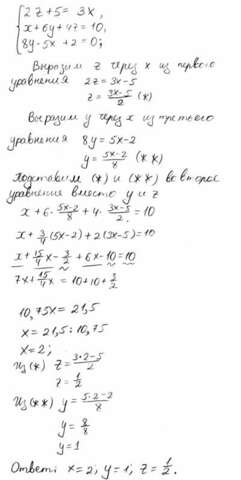 2z+5=3x,
x+6y+4z=10,
8y-5x+2=0;
Выразим z через x из первого
уравнения 2z=3x-5
z=\frac{3x-5}{2} (*)
Выразим y через x из третьего
уравнения 8y=5x-2
y=\frac{5x-2}{8} (**)
Подставим (*) и (**) во второе
уравнение вместо y и z
x+6·\frac{5x-2}{8}+4·\frac{3x-5}{2}=10
x+\frac{3}{4}(5x-2)+2(3x-5)=10
x+\frac{15}{4}x-\frac{3}{2}+6x-10=10
7x+\frac{15}{4}x=10+10+\frac{3}{2}
10,75x=21,5
x=21,5:10,75
x=2;
Из(*) z=\frac{3·2-5}{2}
z=\frac{1}{2}
Из(**) y=\frac{5·2-2}{8}
y=\frac{8}{8}
y=1
Ответ: x=2; y=1; z=\frac{1}{2}.